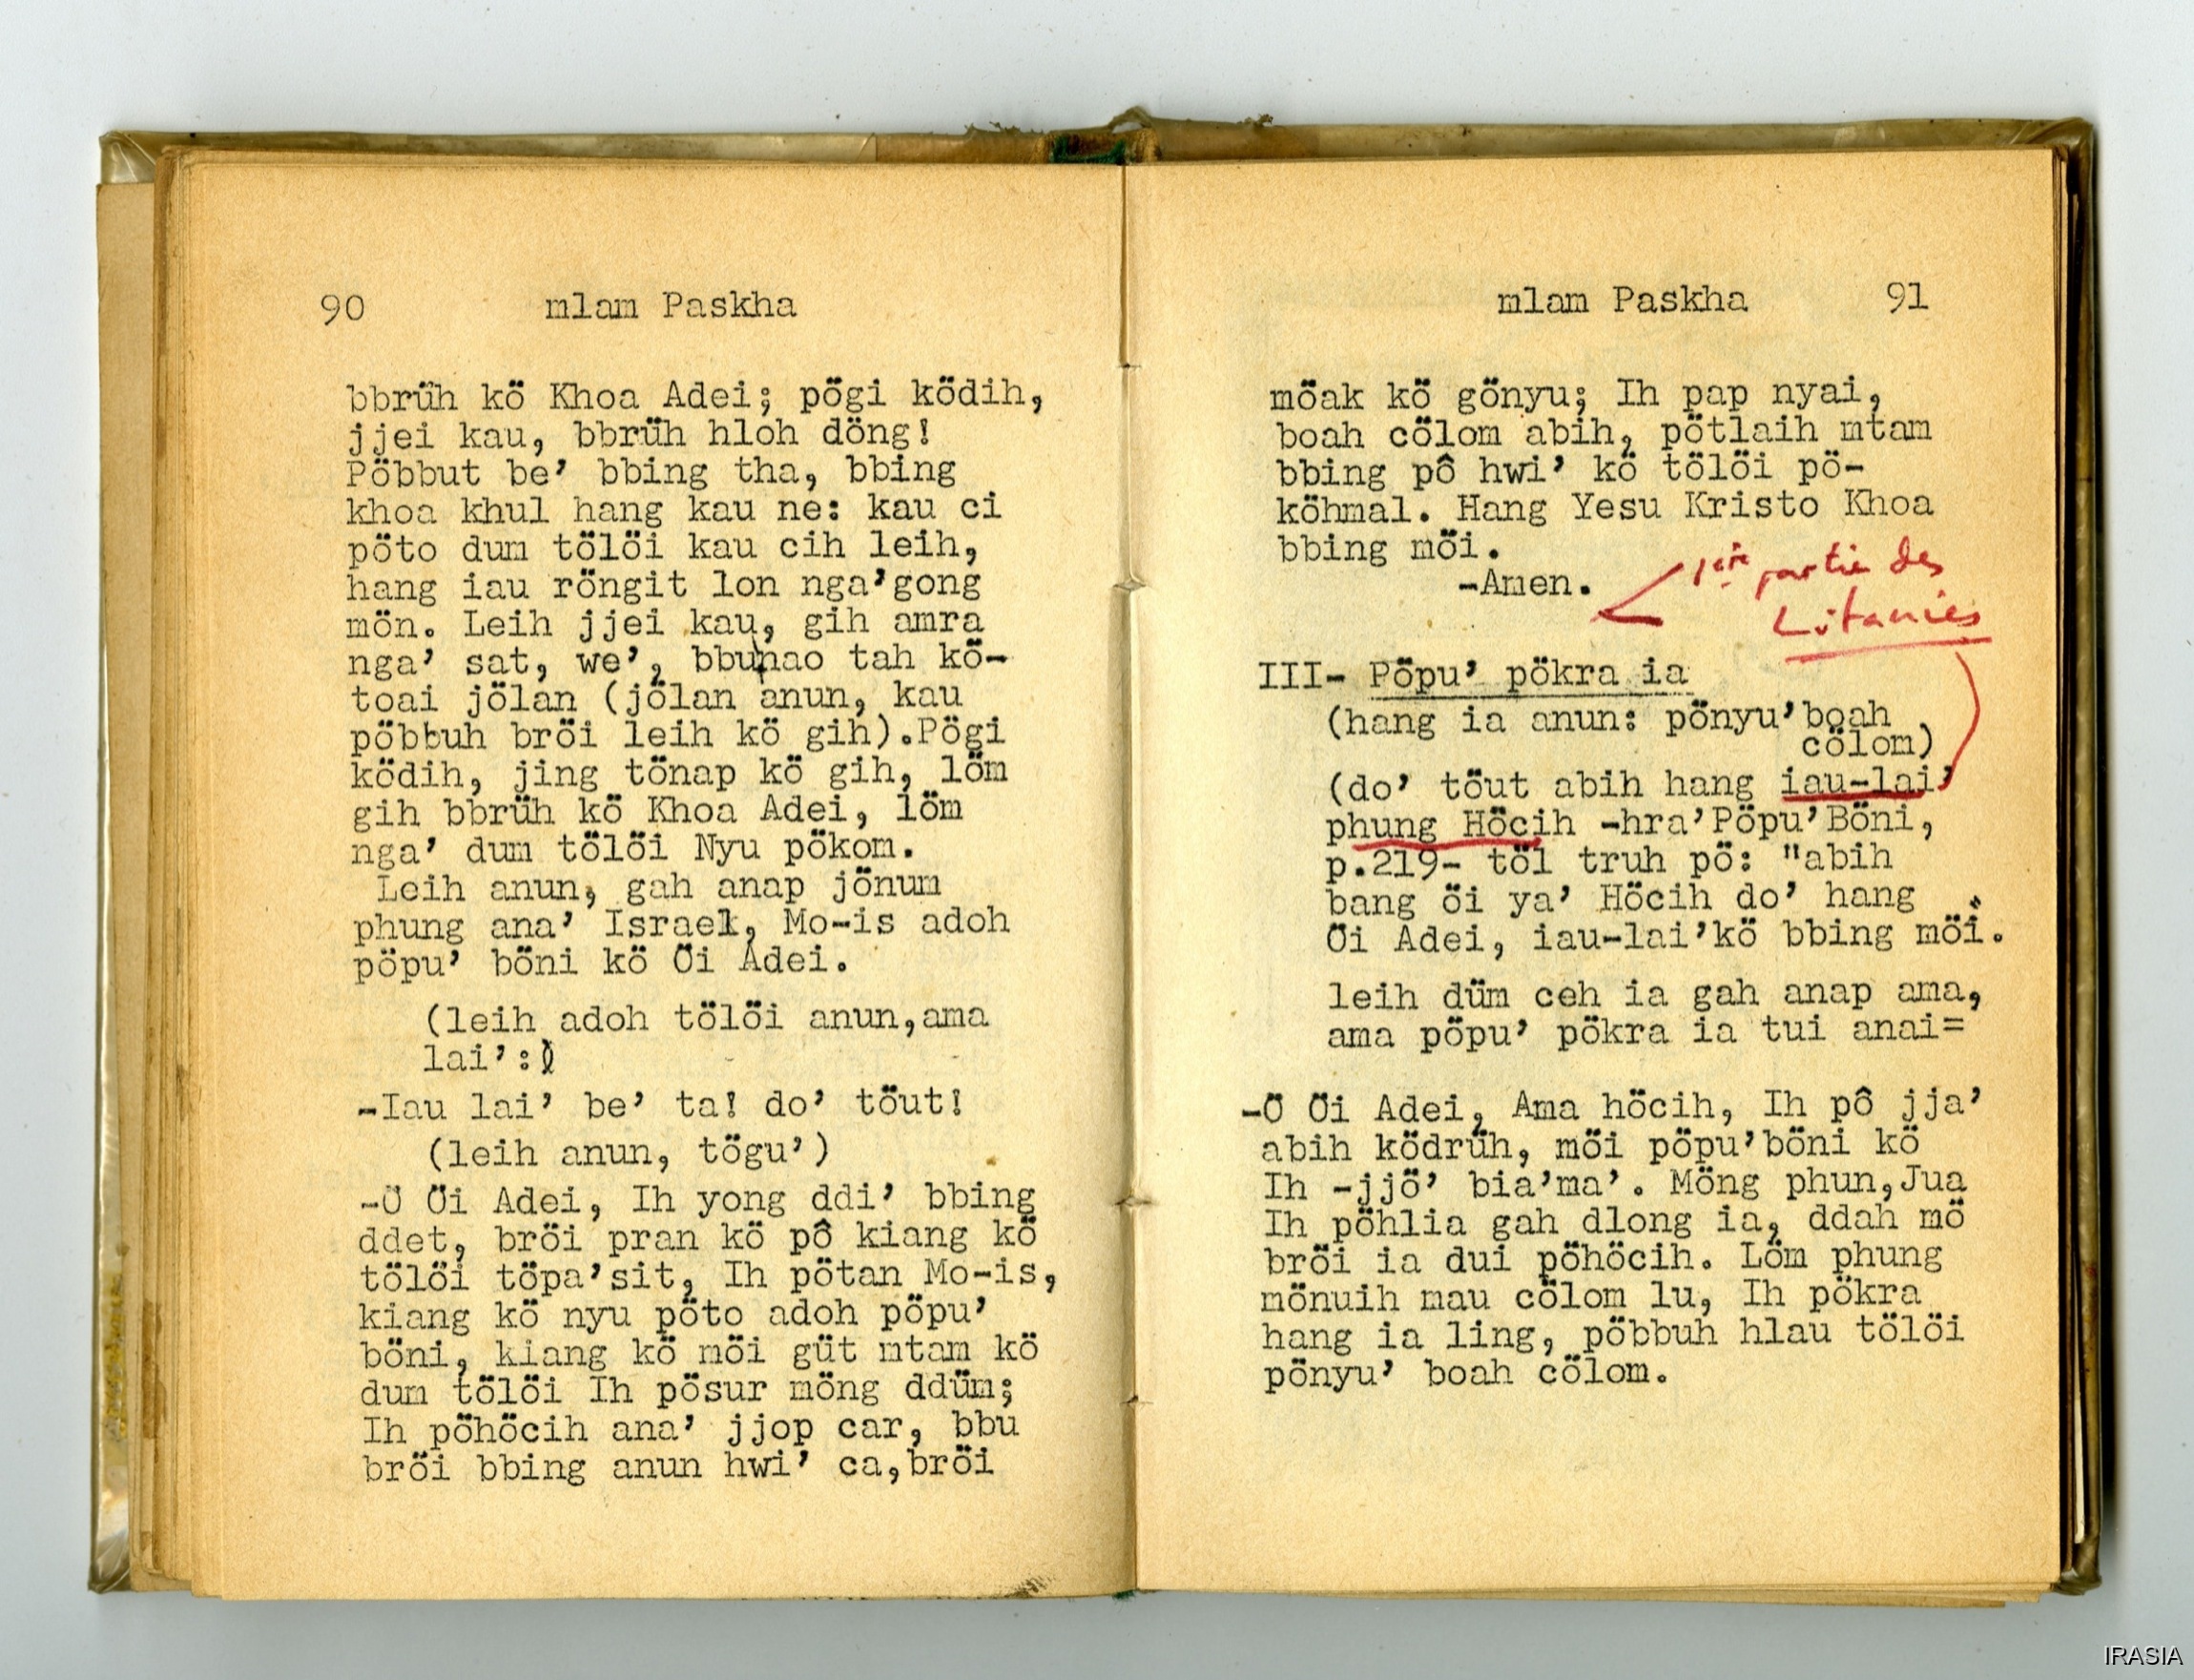 90 mlam Paskha
bbrŭh kö Khoa Adei; pögi ködih,
jjei kau, bbrüh hloh döng!
Pöbbut be’ bbing tha, bbing
khoa khul hang kau ne: kau ci
pöto dum tölöi kau cih leih,
hang iau röngit lon nga’gong
mön. Leih jjei kau, gih amra
nga’ sat, we’, bbuhao tah kö-
toai jölan (jölan anun, kau
pöbbuh bröi leih kö gih).Pögi
ködih, jing tönap kö gih, löm
gih bbrüh kö Khoa Adei, löm
nga’ dum tölöi Nyu pökom.
Leih anun, gah anap jönum
phung ana’ Israel, Mo-is adoh
pöpu’ böni kö Öi Adei.
(leih adoh tölöi anun,ama
lai’:)
-Iau lai’ be’ ta! do’ töut!
(leih anun, tögu’)
-Ö Öi Adei, Ih yong ddi’ bbing
ddet, bröi pran kö pô kiang kö
tölöi töpa’sit, Ih pötan Mo-is,
kiang kö nyu pöto adoh pöpu’
böni, kiang kö möi güt mtam kö
dum tölöi Ih pösur möng ddüm;
Ih pöhöcih ana’ jjop car, bbu
bröi bbing anun hwi’ ca,bröi
mlam Paskha 91
möak kö gönyu; Ih pap nyai,
boah cölom abih, pötlaih mtam
bbing pô hwi’ kö tölöi pö-
köhmal. Hang Yesu Kristo Khoa
bbing möi.
-Amen.
1ère partie des
Litanies
III- Pöpu’ pökra ia
(hang ia anun: pönyu’boah
cölom)
(do’ töut abih hang iau-lai’
phung Höcih -hra’Pöpu’Böni,
p.219- töl truh pö: "abih
bang öi ya’ Höcih do’ hang
Öi Adei, iau-lai’kö bbing möi.
leih düm ceh ia gah anap ama,
ama pöpu’ pökra ia tui anai=
-Ö Öi Adei, Ama höcih, Ih pô jja’
abih ködrüh, möi pöpu’böni kö
Ih -jjö’ bia’ma’. Möng phun,Jua
Ih pöhlia gah dlong ia, ddah mö
bröi ia dui pöhöcih. Löm phung
mönuih mau cölom lu, Ih pökra
hang ia ling, pöbbuh hlau tölöi
pönyu’ boah cölom.
IRASIA